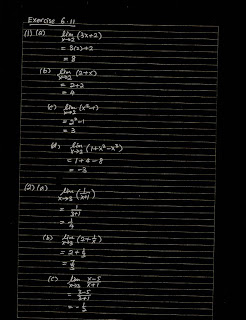 Exercise 6.11
(1) (a) lim x→2 (3x+2)
= 3(2)+2
= 8
(b) lim x→2 (2+x)
= 2+2
= 4
(c) lim x→2 (x²-1)
= 2²-1
= 3
(d) lim x→2 (1+x²-x³)
= 1+4-8
= -3
(2) (a) lim x→3 (1/(x+1))
= 1/(3+1)
= 1/4
(b) lim x→3 (2+1/x)
= 2+1/3
= 7/3
(c) lim x→3 (x-5)/(x+1)
= (3-5)/(3+1)
= -1/2